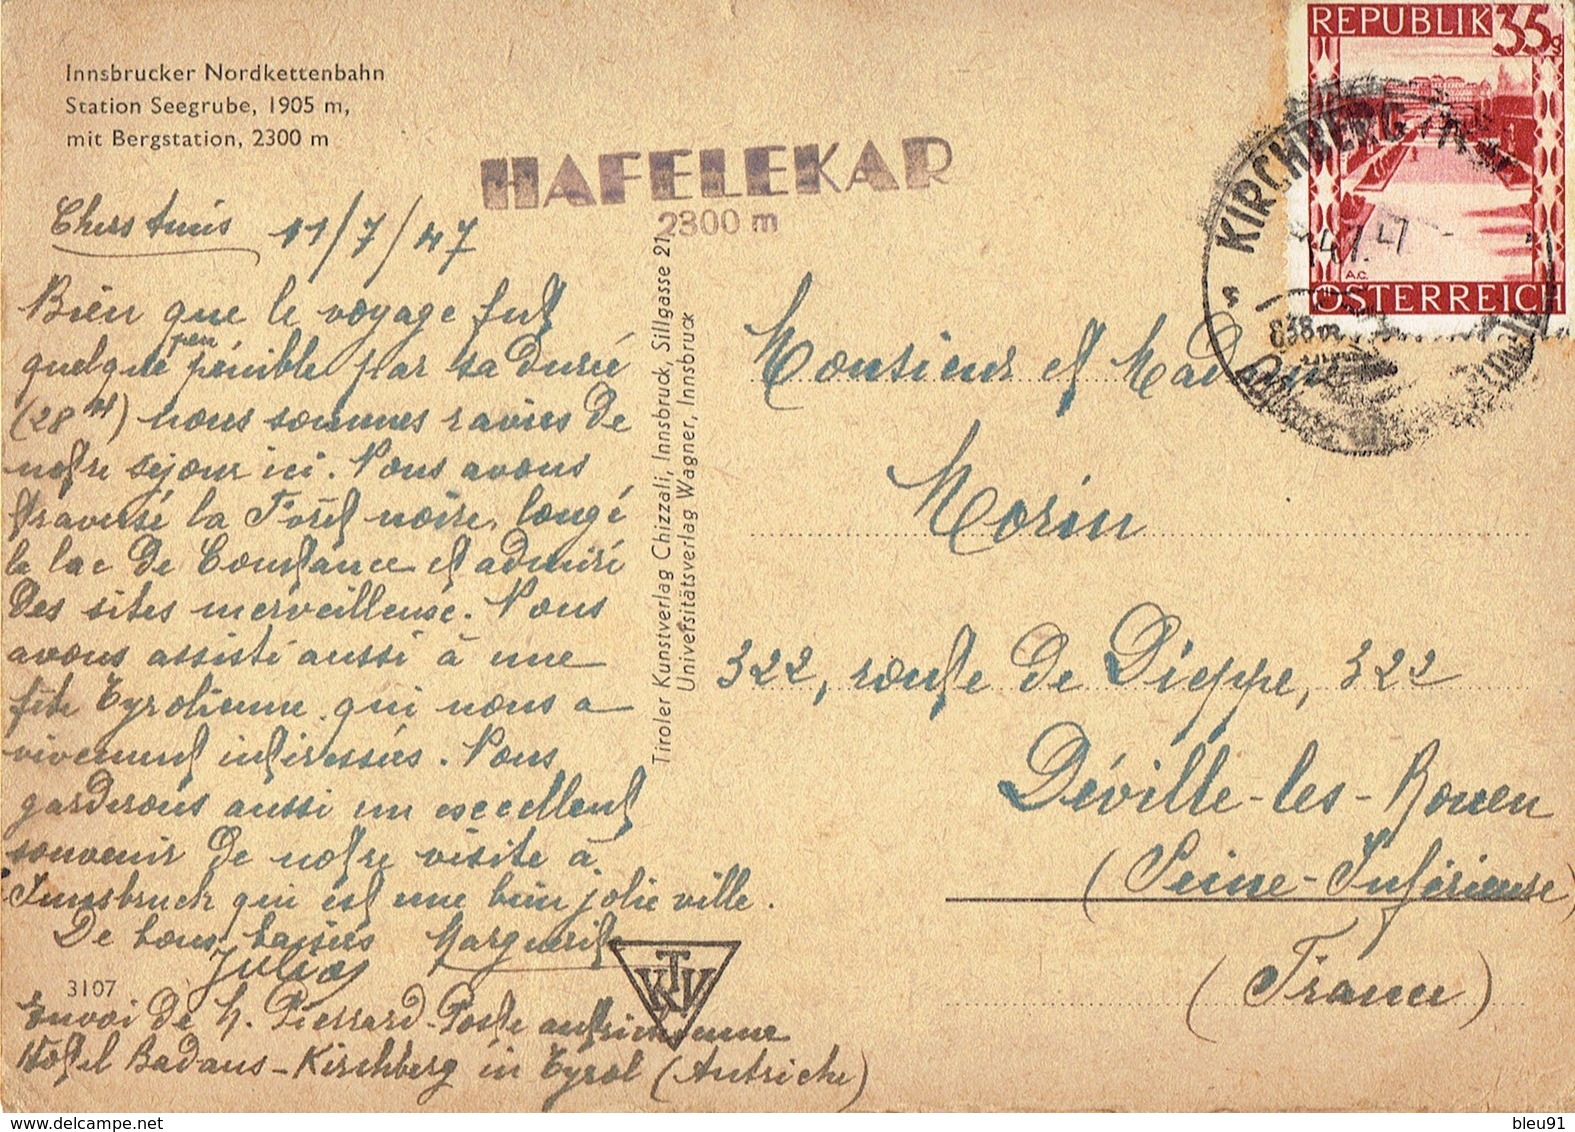 Innsbrucker Nordkettenbahn
Station Seegrube, 1905 m,
mit Bergstation, 2300 m
HAFELEKAR
2300 m
Chers amis 11/7/47
Bien que le voyage fut
quelque peu pénible par sa durée
(28 H) nous sommes ravies de
notre séjour ici. Nous avons
traversé la Forêt noire, longé
le lac de Constance et admiré
des sites merveilleuse. Nous
avons assisté aussi à une
fête Tyrolienne qui nous a
vivement intéressées. Nous
garderons aussi un excellent
souvenir de notre visite à
Innsbruck qui est une bien jolie ville.
De bons baisers Marguerite
Julias
3107
Envoi de M. Pierrard-Poste autrichienne
Hôtel Badaus-Kirchberg in Tyrol (Autriche)
Tiroler Kunstverlag Chizzali, Innsbruck, Sillgasse 21
Universitätsverlag Wagner, Innsbruck
KTV
REPUBLIK 35g
A.C.
ÖSTERREICH
KIRCHBERG
14.7.47
838m
Monsieur et Madame
Morin
322, route de Dieppe, 322
Déville-les-Rouen
(Seine-Inférieure)
(France)
www.delcampe.net
bleu91